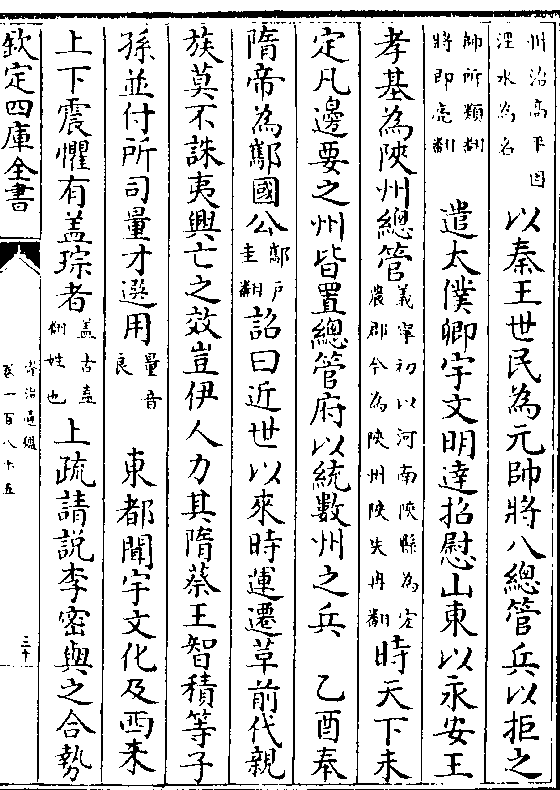 州治高平因涇水為名以秦王世民為元帥將八總管兵以拒之
帥所類翻將即亮翻 遣太僕卿宇文明達招慰山東以永安王
孝基為陜州總管義寧初以河南陜縣為宏農郡今為陜州陜失冉翻時天下未
定凡邊要之州皆置總管府以統數州之兵 乙酉奉
隋帝為酅國公酅戶圭翻詔曰近世以來時運遷革前代親
族莫不誅夷興亡之效豈伊人力其隋蔡王智積等子
孫並付所司量才選用量音良 東都聞宇文化及西來
上下震懼有盖琮者盖古盍翻姓也上疏請説李密與之合勢
欽定四庫全書
資治通鑑
卷一百八十五
三十